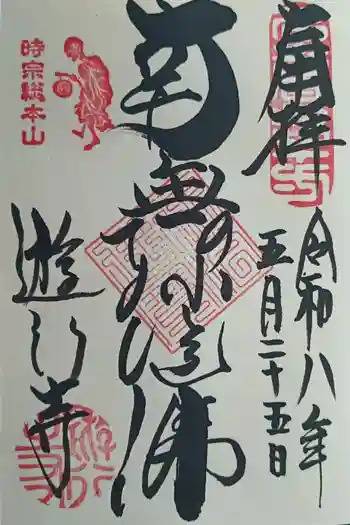 奉拝
令和八年
五月二十五日
南無阿弥陀佛
時宗総本山
遊行寺